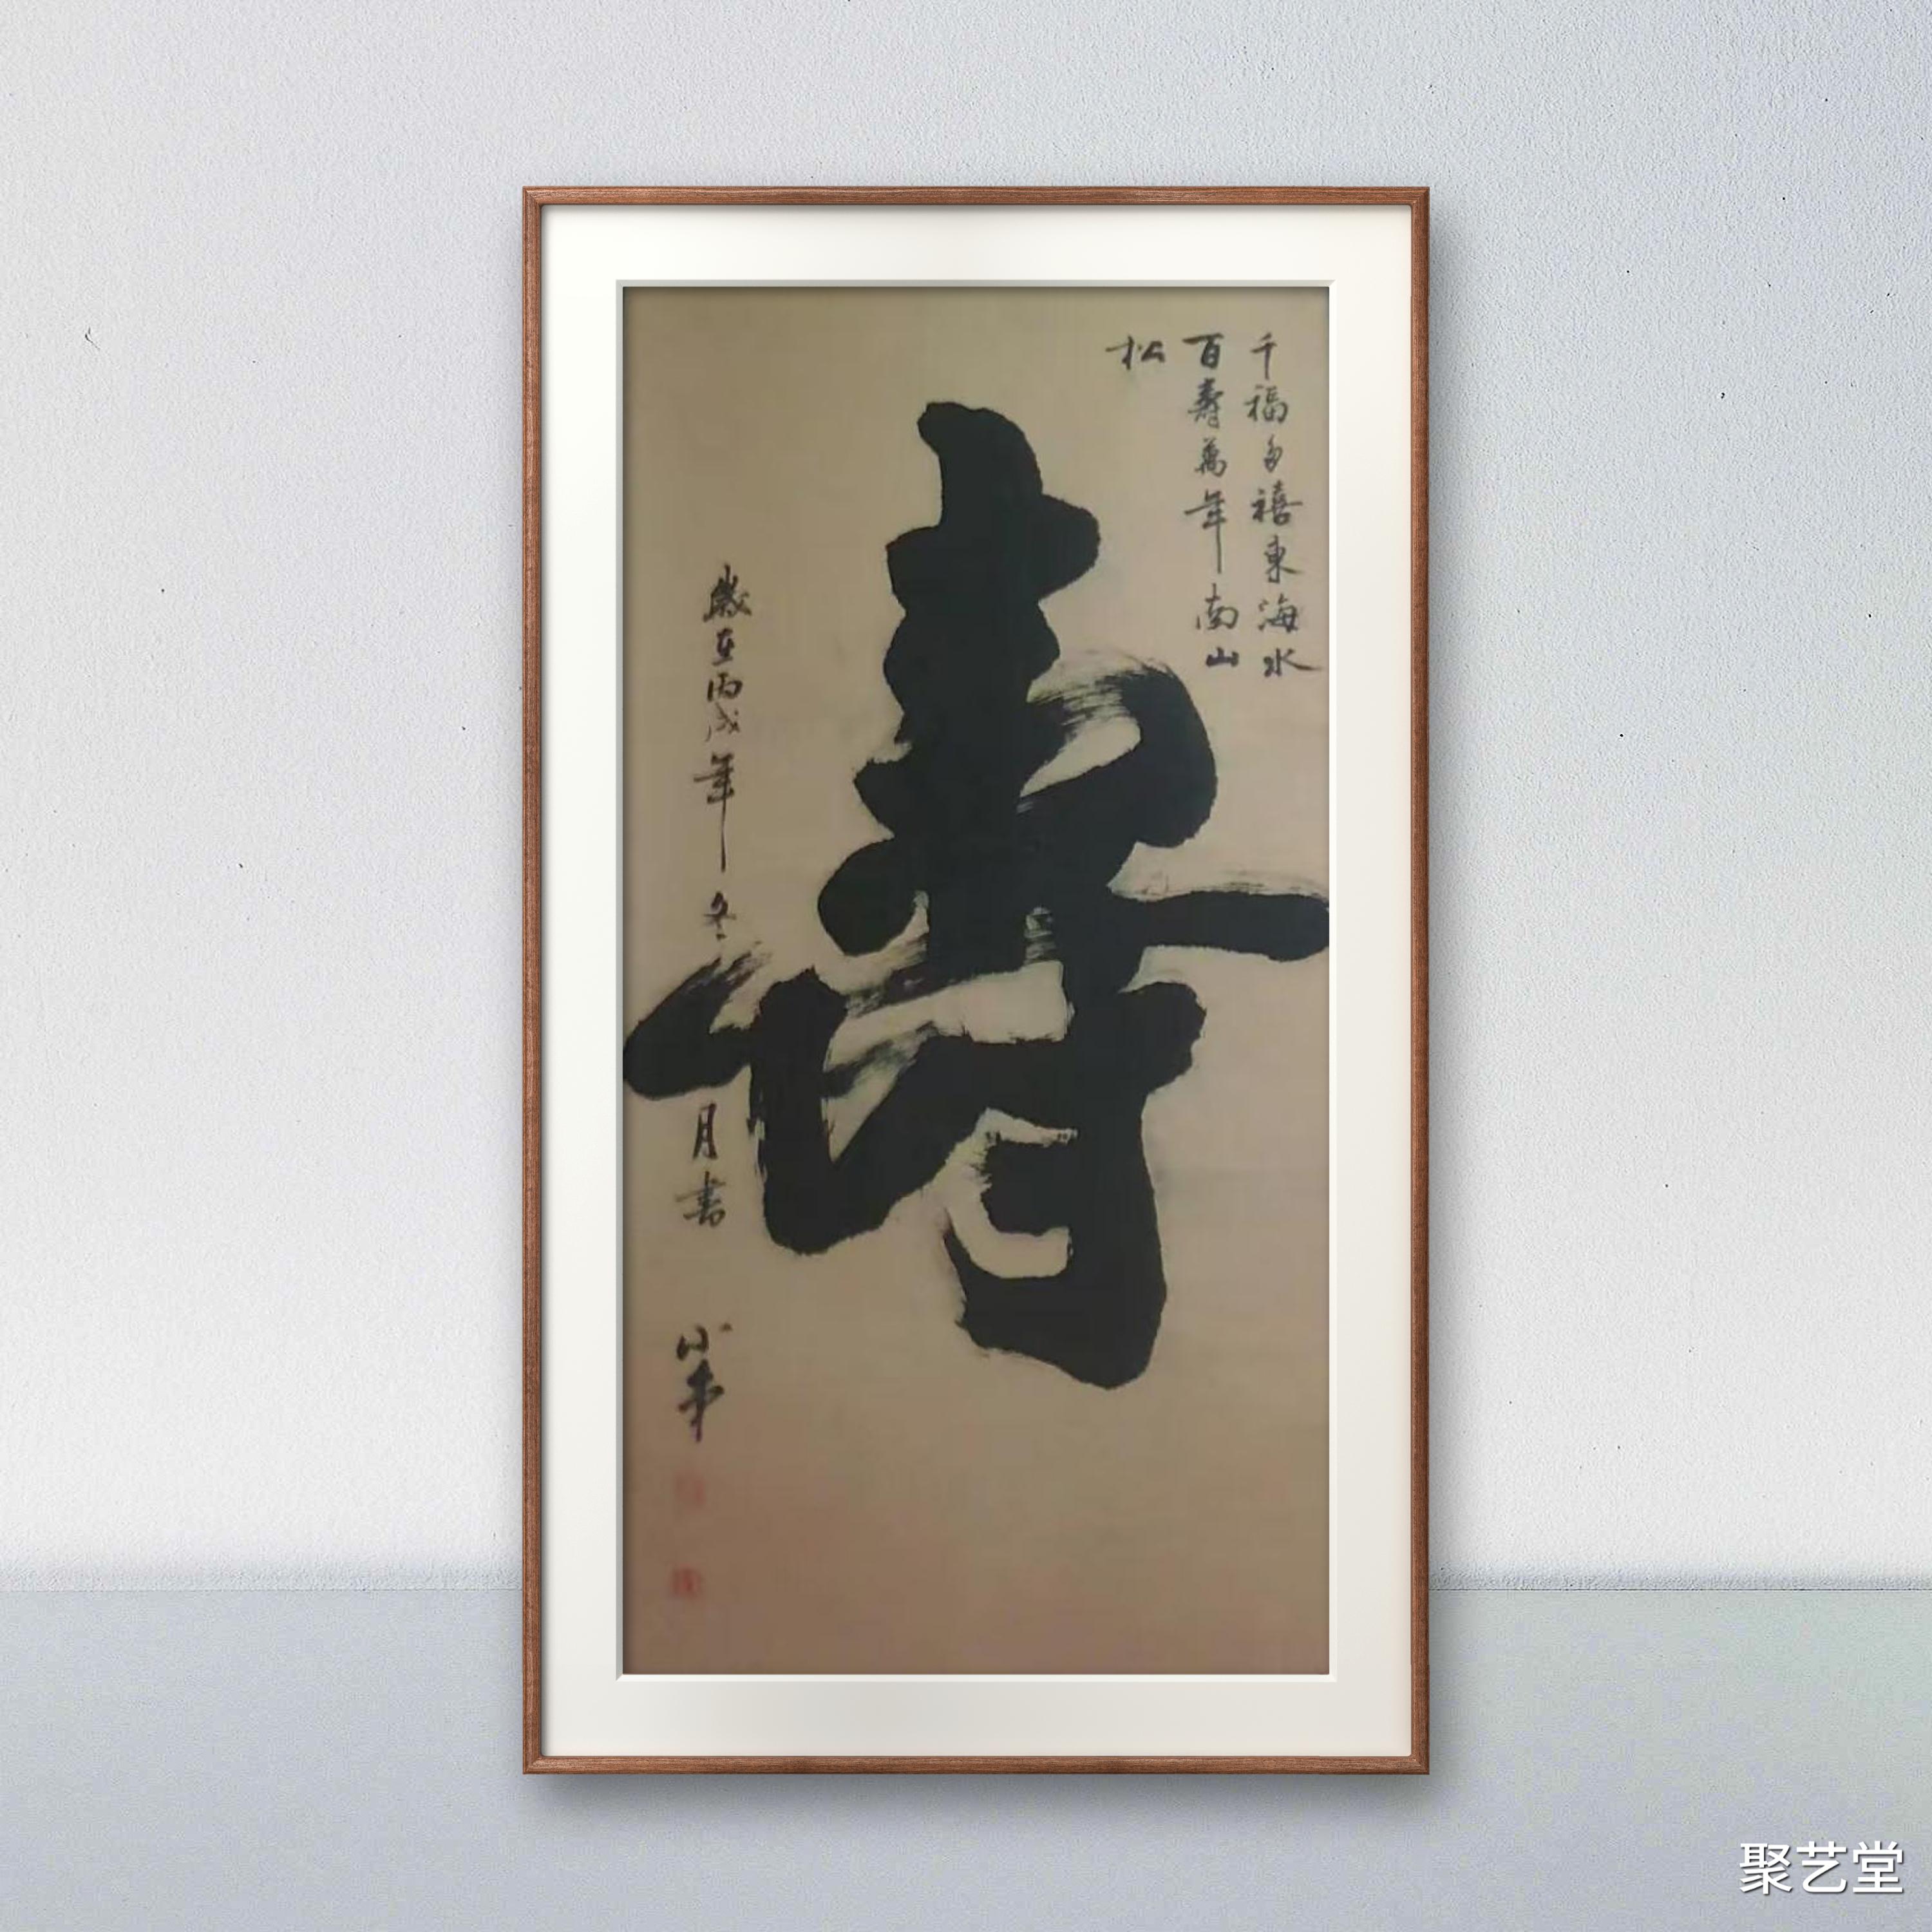 千福多禧東海水
百壽萬年南山
松
壽
歲在丙戌年冬月書
聚艺堂